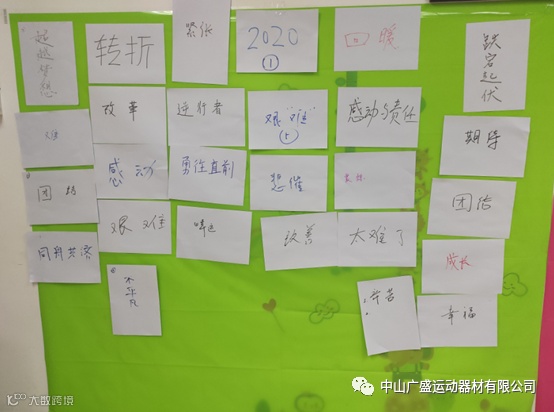 超越梦想
转折
紧张
2020
①
回暖
跌宕起伏
改革
逆行者
艰"难"
感动与责任
期待
感动
勇往直前
团结
艰难
改善
太难了
团结
同舟共济
成长
不平凡
辛苦
幸福
大数跨境
中山广盛运动器材有限公司